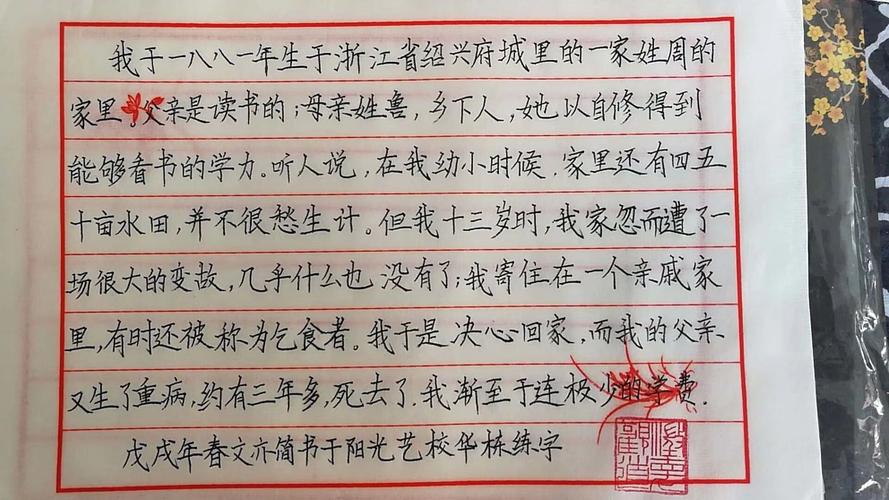 我于一八八一年生于浙江省绍兴府城里的一家姓周的
家里。父亲是读书的；母亲姓鲁，乡下人，她以自修得到
能够看书的学力。听人说，在我幼小时候，家里还有四五
十亩水田，并不很愁生计。但我十三岁时，我家忽而遭了一
场很大的变故，几乎什么也没有了；我寄住在一个亲戚家
里，有时还被称为乞食者。我于是决心回家，而我的父亲
又生了重病，约有三年多，死去了。我渐至于连极少的学费．
戊戌年春文亦简书于阳光艺校华栋练字